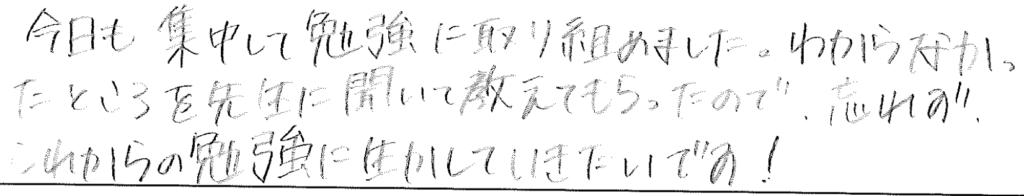 今日も集中して勉強に取り組めました。わからなかっ
たところを先生に聞いて教えてもらったので、忘れず、
これからの勉強に生かしていきたいです!